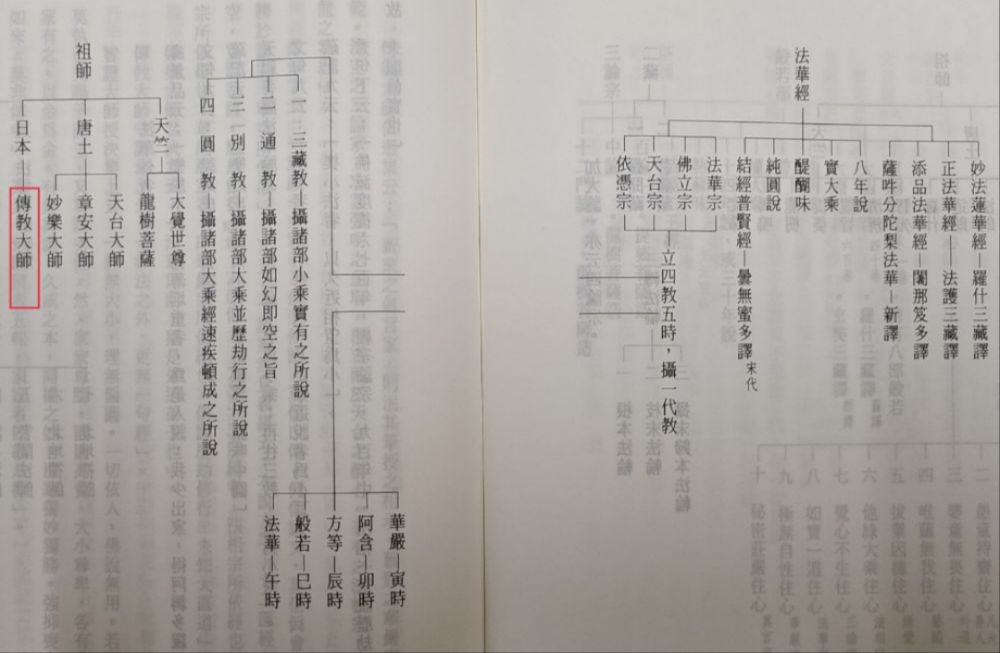 法華經
妙法蓮華經—羅什三藏譯
正法華經—法護三藏譯
添品法華經—闍那笈多譯
薩吽分陀梨法華—新譯
八年說
實大乘
醍醐味
純圓說
結經普賢經—曇無蜜多譯 宋代
法華宗
佛立宗
天台宗
依憑宗
立四教五時，攝一代教
華嚴—寅時
阿含—卯時
方等—辰時
般若—巳時
法華—午時
一 三藏教—攝諸部小乘實有之所說
二 通 教—攝諸部如幻即空之旨
三 別 教—攝諸部大乘並歷劫行之所說
四 圓 教—攝諸部大乘經速疾頓成之所說
祖師
天竺
大覺世尊
龍樹菩薩
唐土
天台大師
章安大師
妙樂大師
日本—傳教大師